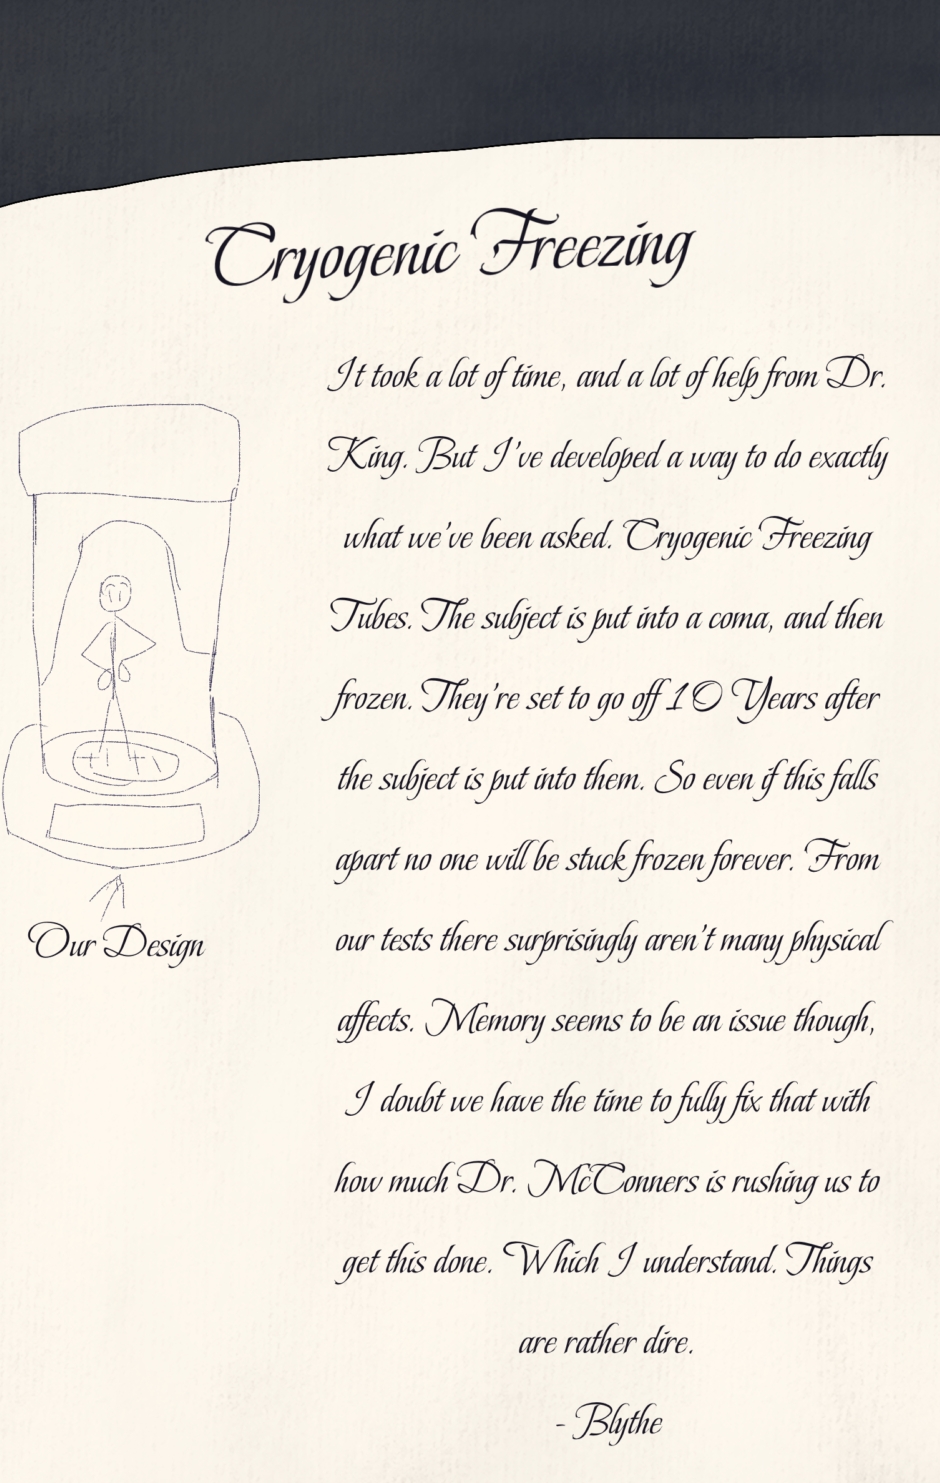 Cryogenic Freezing
It took a lot of time, and a lot of help from Dr.
King. But I've developed a way to do exactly
what we've been asked. Cryogenic Freezing
Tubes. The subject is put into a coma, and then
frozen. They're set to go off 10 Years after
the subject is put into them. So even if this falls
apart no one will be stuck frozen forever. From
our tests there surprisingly aren't many physical
affects. Memory seems to be an issue though,
I doubt we have the time to fully fix that with
how much Dr. McConners is rushing us to
get this done. Which I understand. Things
are rather dire.
- Blythe
Our Design